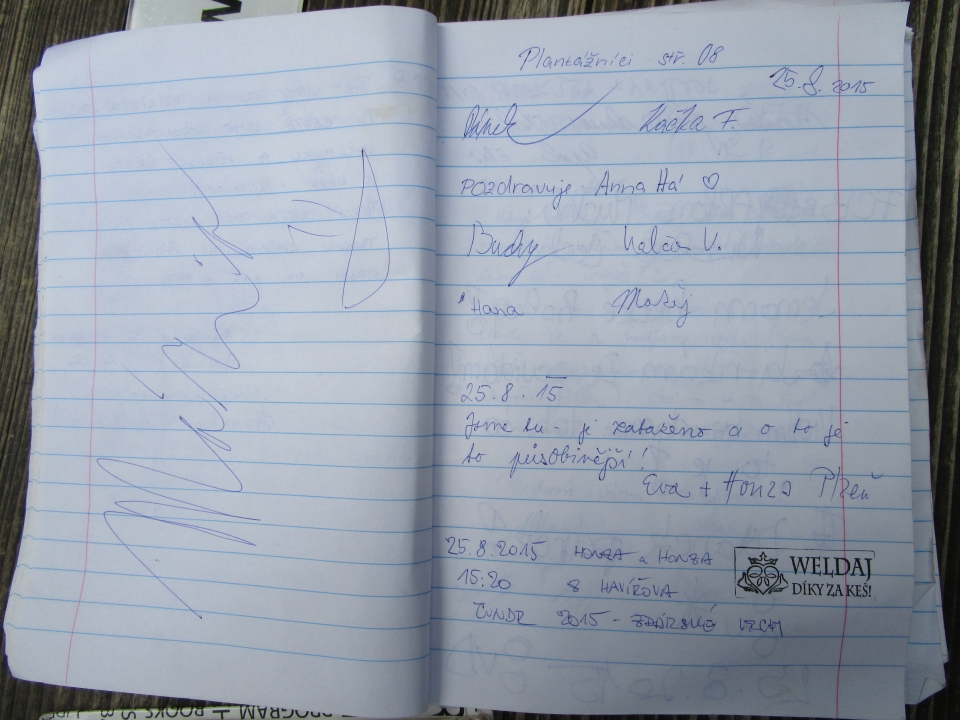 Plantážníci stř. 08
25.8.2015
Pánek Kačka F.
Pozdravuje Anna Há ♡
Budy V.
Hana Matěj
25.8.15
Jsme tu - je zataženo a o to je
to působivější!
Eva + Honza Plzeň
25.8.2015 HONZA a HONZA
15:20 Z HAVÍŘOVA
ČUNDR 2015 - ŽĎÁRSKÉ VRCHY
WELDAJ
DÍKY ZA KEŠ!
PROGRAM